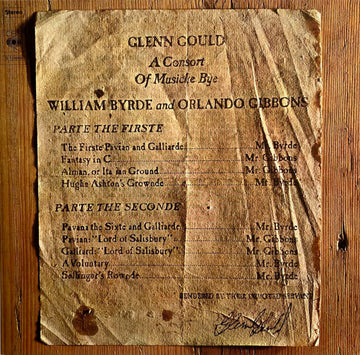 Stereo
GLENN GOULD
A Consort
Of Musicke Bye
WILLIAM BYRDE and ORLANDO GIBBONS
PARTE THE FIRSTE
The Firste Pavian and Galliarde Mr. Byrde
Fantasy in C Mr. Gibbons
Alman, or Italian Ground Mr. Gibbons
Hughe Ashton's Grownde Mr. Byrde
PARTE THE SECONDE
Pavana the Sixte and Galliarde Mr. Byrde
Pavian: "Lord of Salisbury" Mr. Gibbons
Galliard: "Lord of Salisbury" Mr. Gibbons
A Voluntary Mr. Byrde
Sellinger's Rownde Mr. Byrde
RENDERED BY THEIR
Glenn Gould